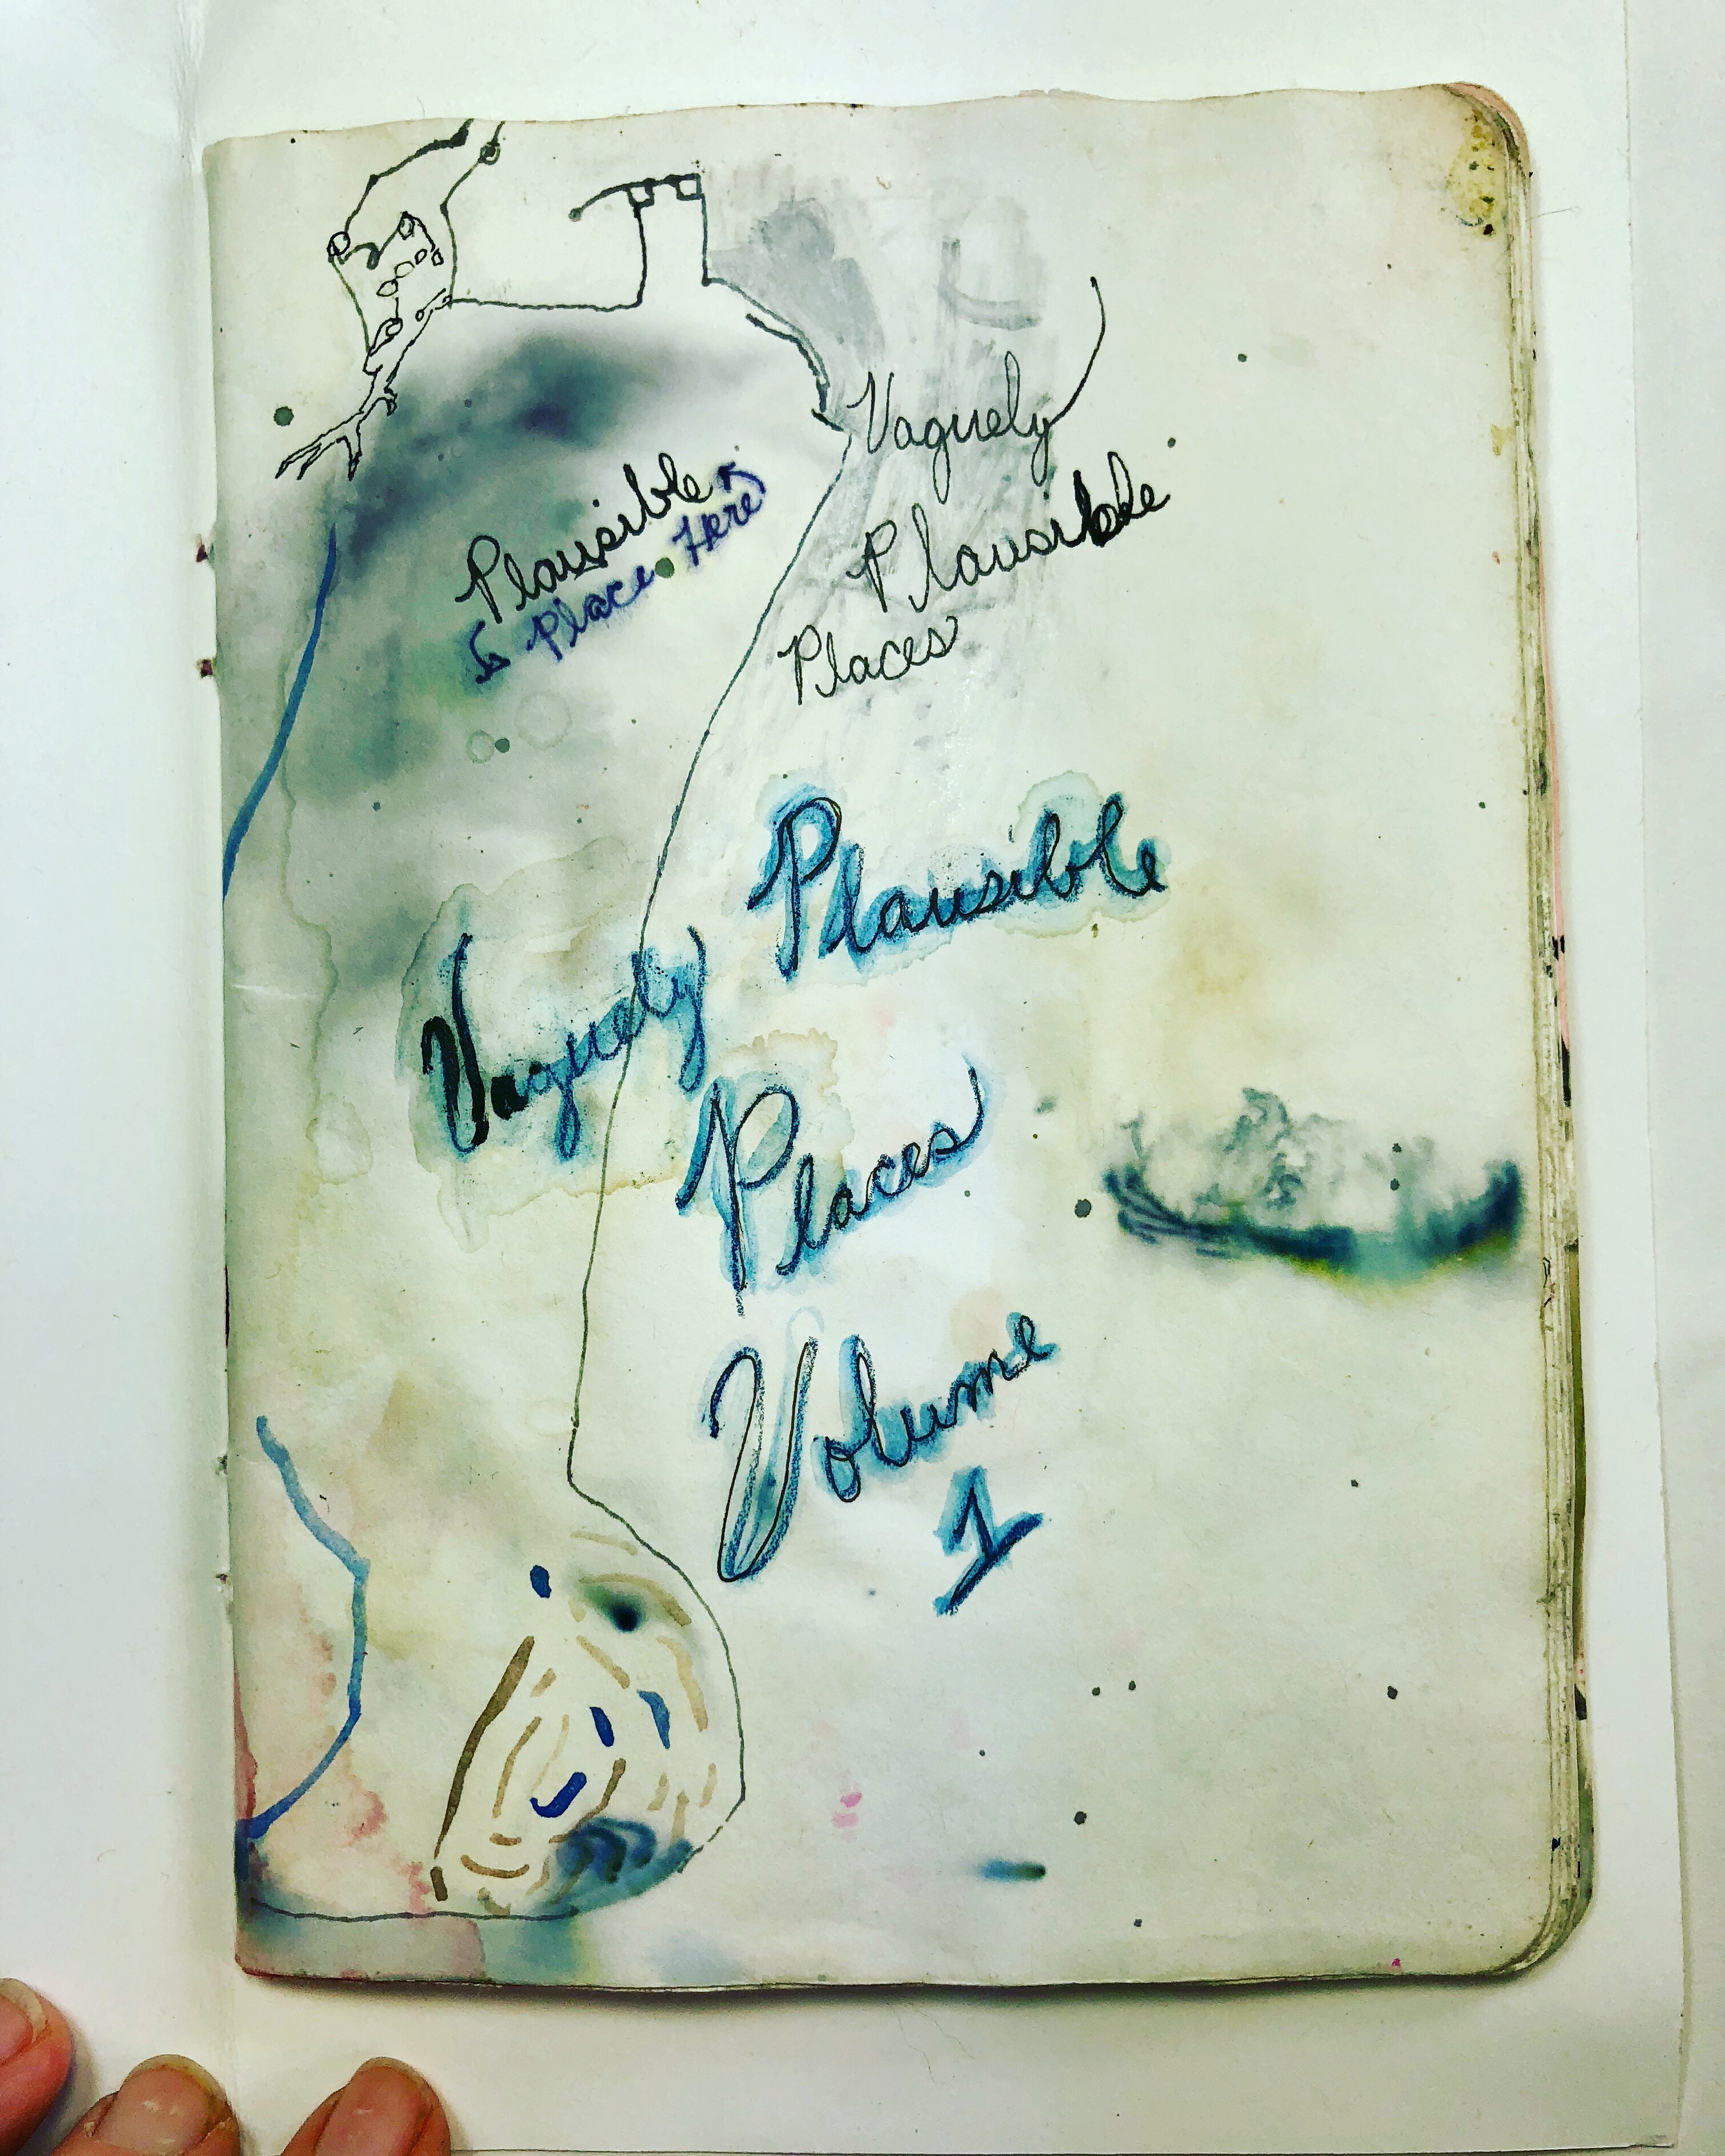 Plausible
Place Here
Vaguely
Plausible
Places
Vaguely Plausible
Places
Volume
1